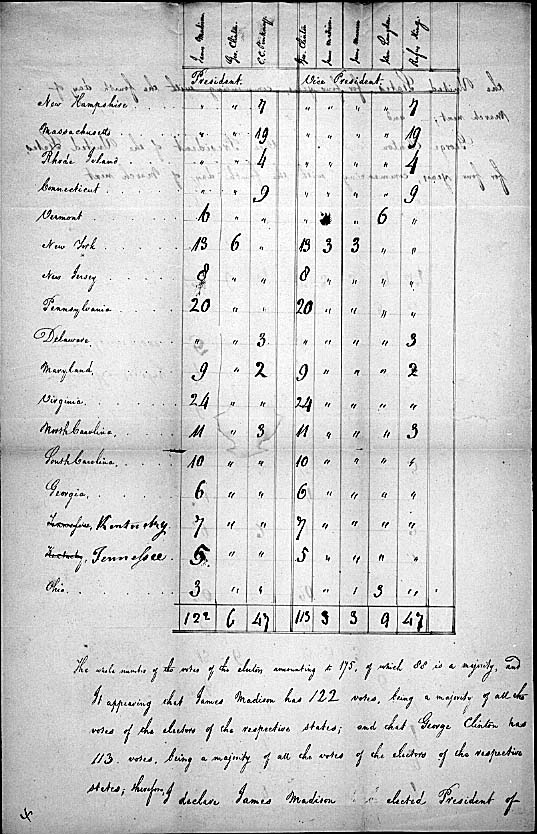 James Madison. Geo. Clinton. C. C. Pinckney. Geo. Clinton. James Madison. James Monroe. John Langdon. Rufus King.
President. Vice President.
New Hampshire . . . " " 7 " " " " 7
Massachusetts . . . " " 19 " " " " 19
Rhode Island . . . " " 4 " " " " 4
Connecticut . . . " " 9 " " " " 9
Vermont . . . 6 " " " " 6 "
New York . . . 13 6 " 13 3 3 " "
New Jersey . . . 8 " " 8 " " " "
Pennsylvania . . . 20 " " 20 " " " "
Delaware . . . " " 3 " " " " 3
Maryland, . . . 9 " 2 9 " " " 2
Virginia. . . . 24 " " 24 " " " "
North Carolina, . . . 11 " 3 11 " " " 3
South Carolina, . . . 10 " " 10 " " " "
Georgia, . . . 6 " " 6 " " " "
Tennessee, Kentucky. 7 " " 7 " " " "
Kentucky, Tennessee. 5 " " 5 " " " "
Ohio. . . . 3 " " " " " 3 "
122 6 47 113 3 3 9 47
The whole number of the votes of the electors amounting to 175, of which 88 is a majority, and
It appearing that James Madison has 122 votes, being a majority of all the
votes of the electors of the respective states; and that George Clinton has
113 votes, being a majority of all the votes of the electors of the respective
states; therefore, I declare James Madison elected President of